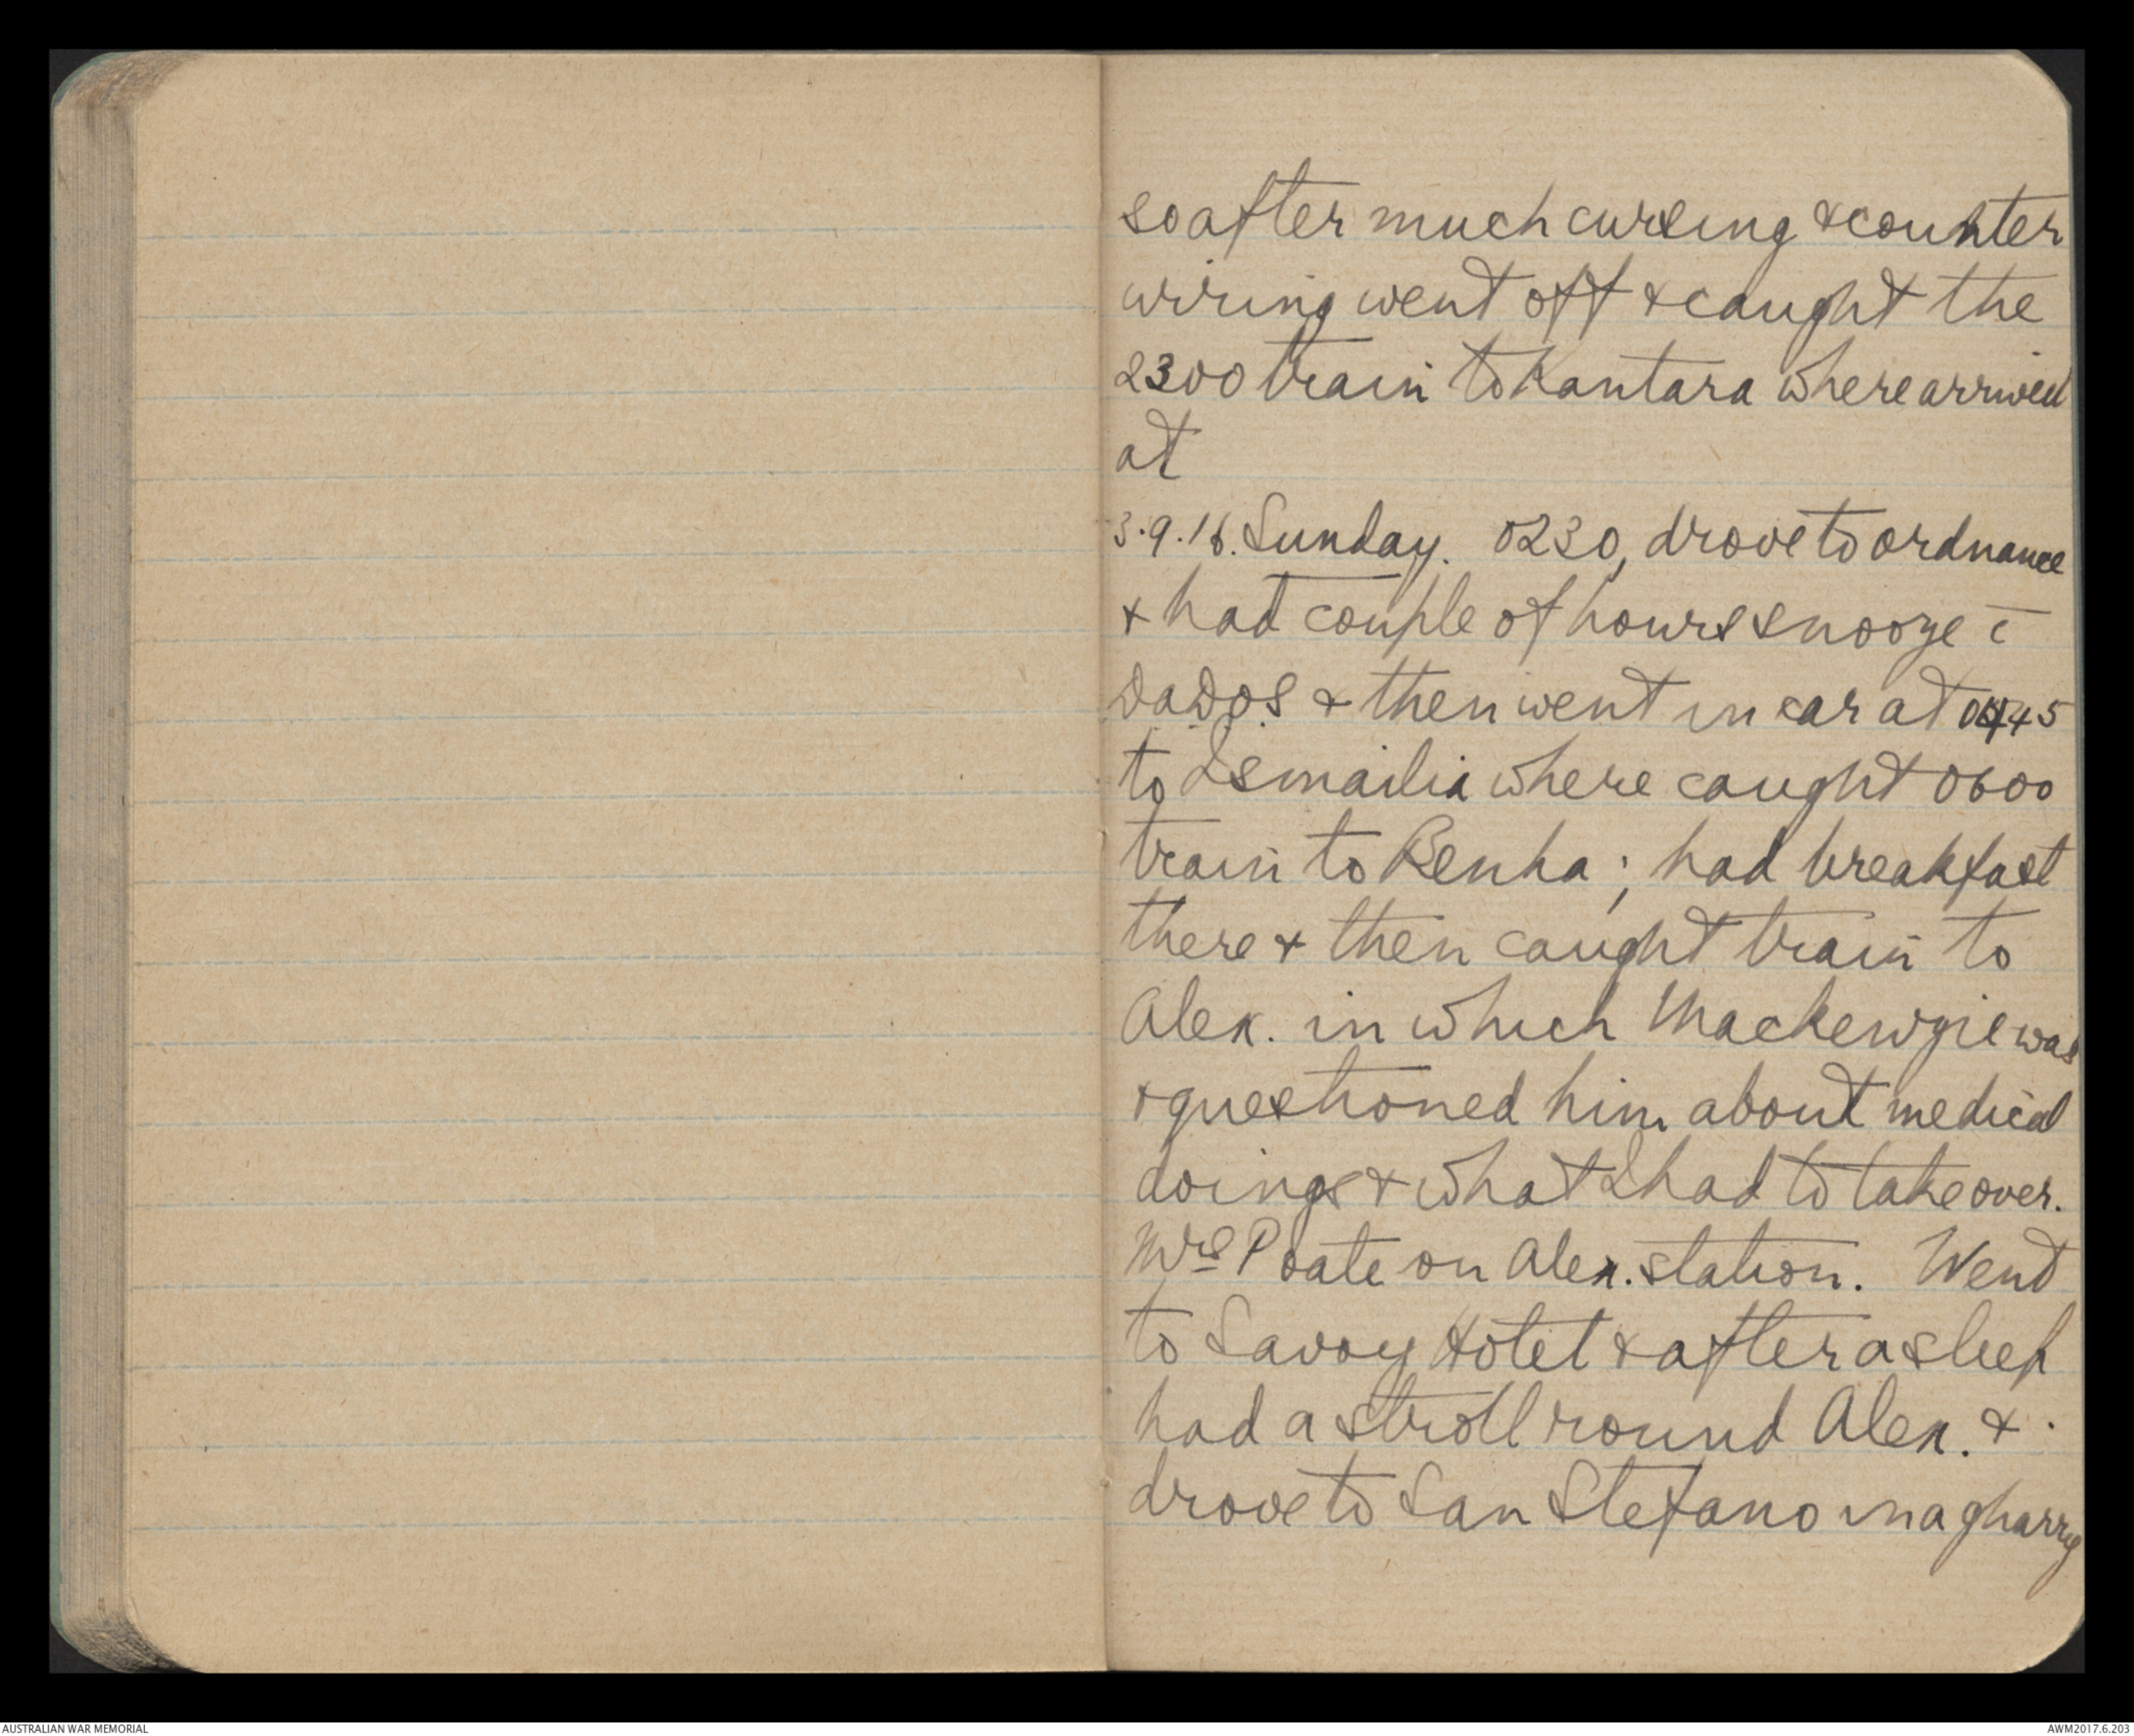 so after much cursing & counter
wiring went off & caught the
2300 train to Kantara where arrived
at
3.9.16. Sunday. 0230, drove to ordnance
& had couple of hours snooze c̄
D.A.D.O.S. & then went in car at 0445
to Ismailia where caught 0600
train to Benha; had breakfast
there & then caught train to
Alex. in which Mackenzie was
& questioned him about medical
doings & what I had to take over.
Mrs Poate on Alex. station. Went
to Savoy Hotel & after a sleep
had a stroll round Alex. &
drove to San Stefano in a gharry
AUSTRALIAN WAR MEMORIAL
AWM2017.6.203